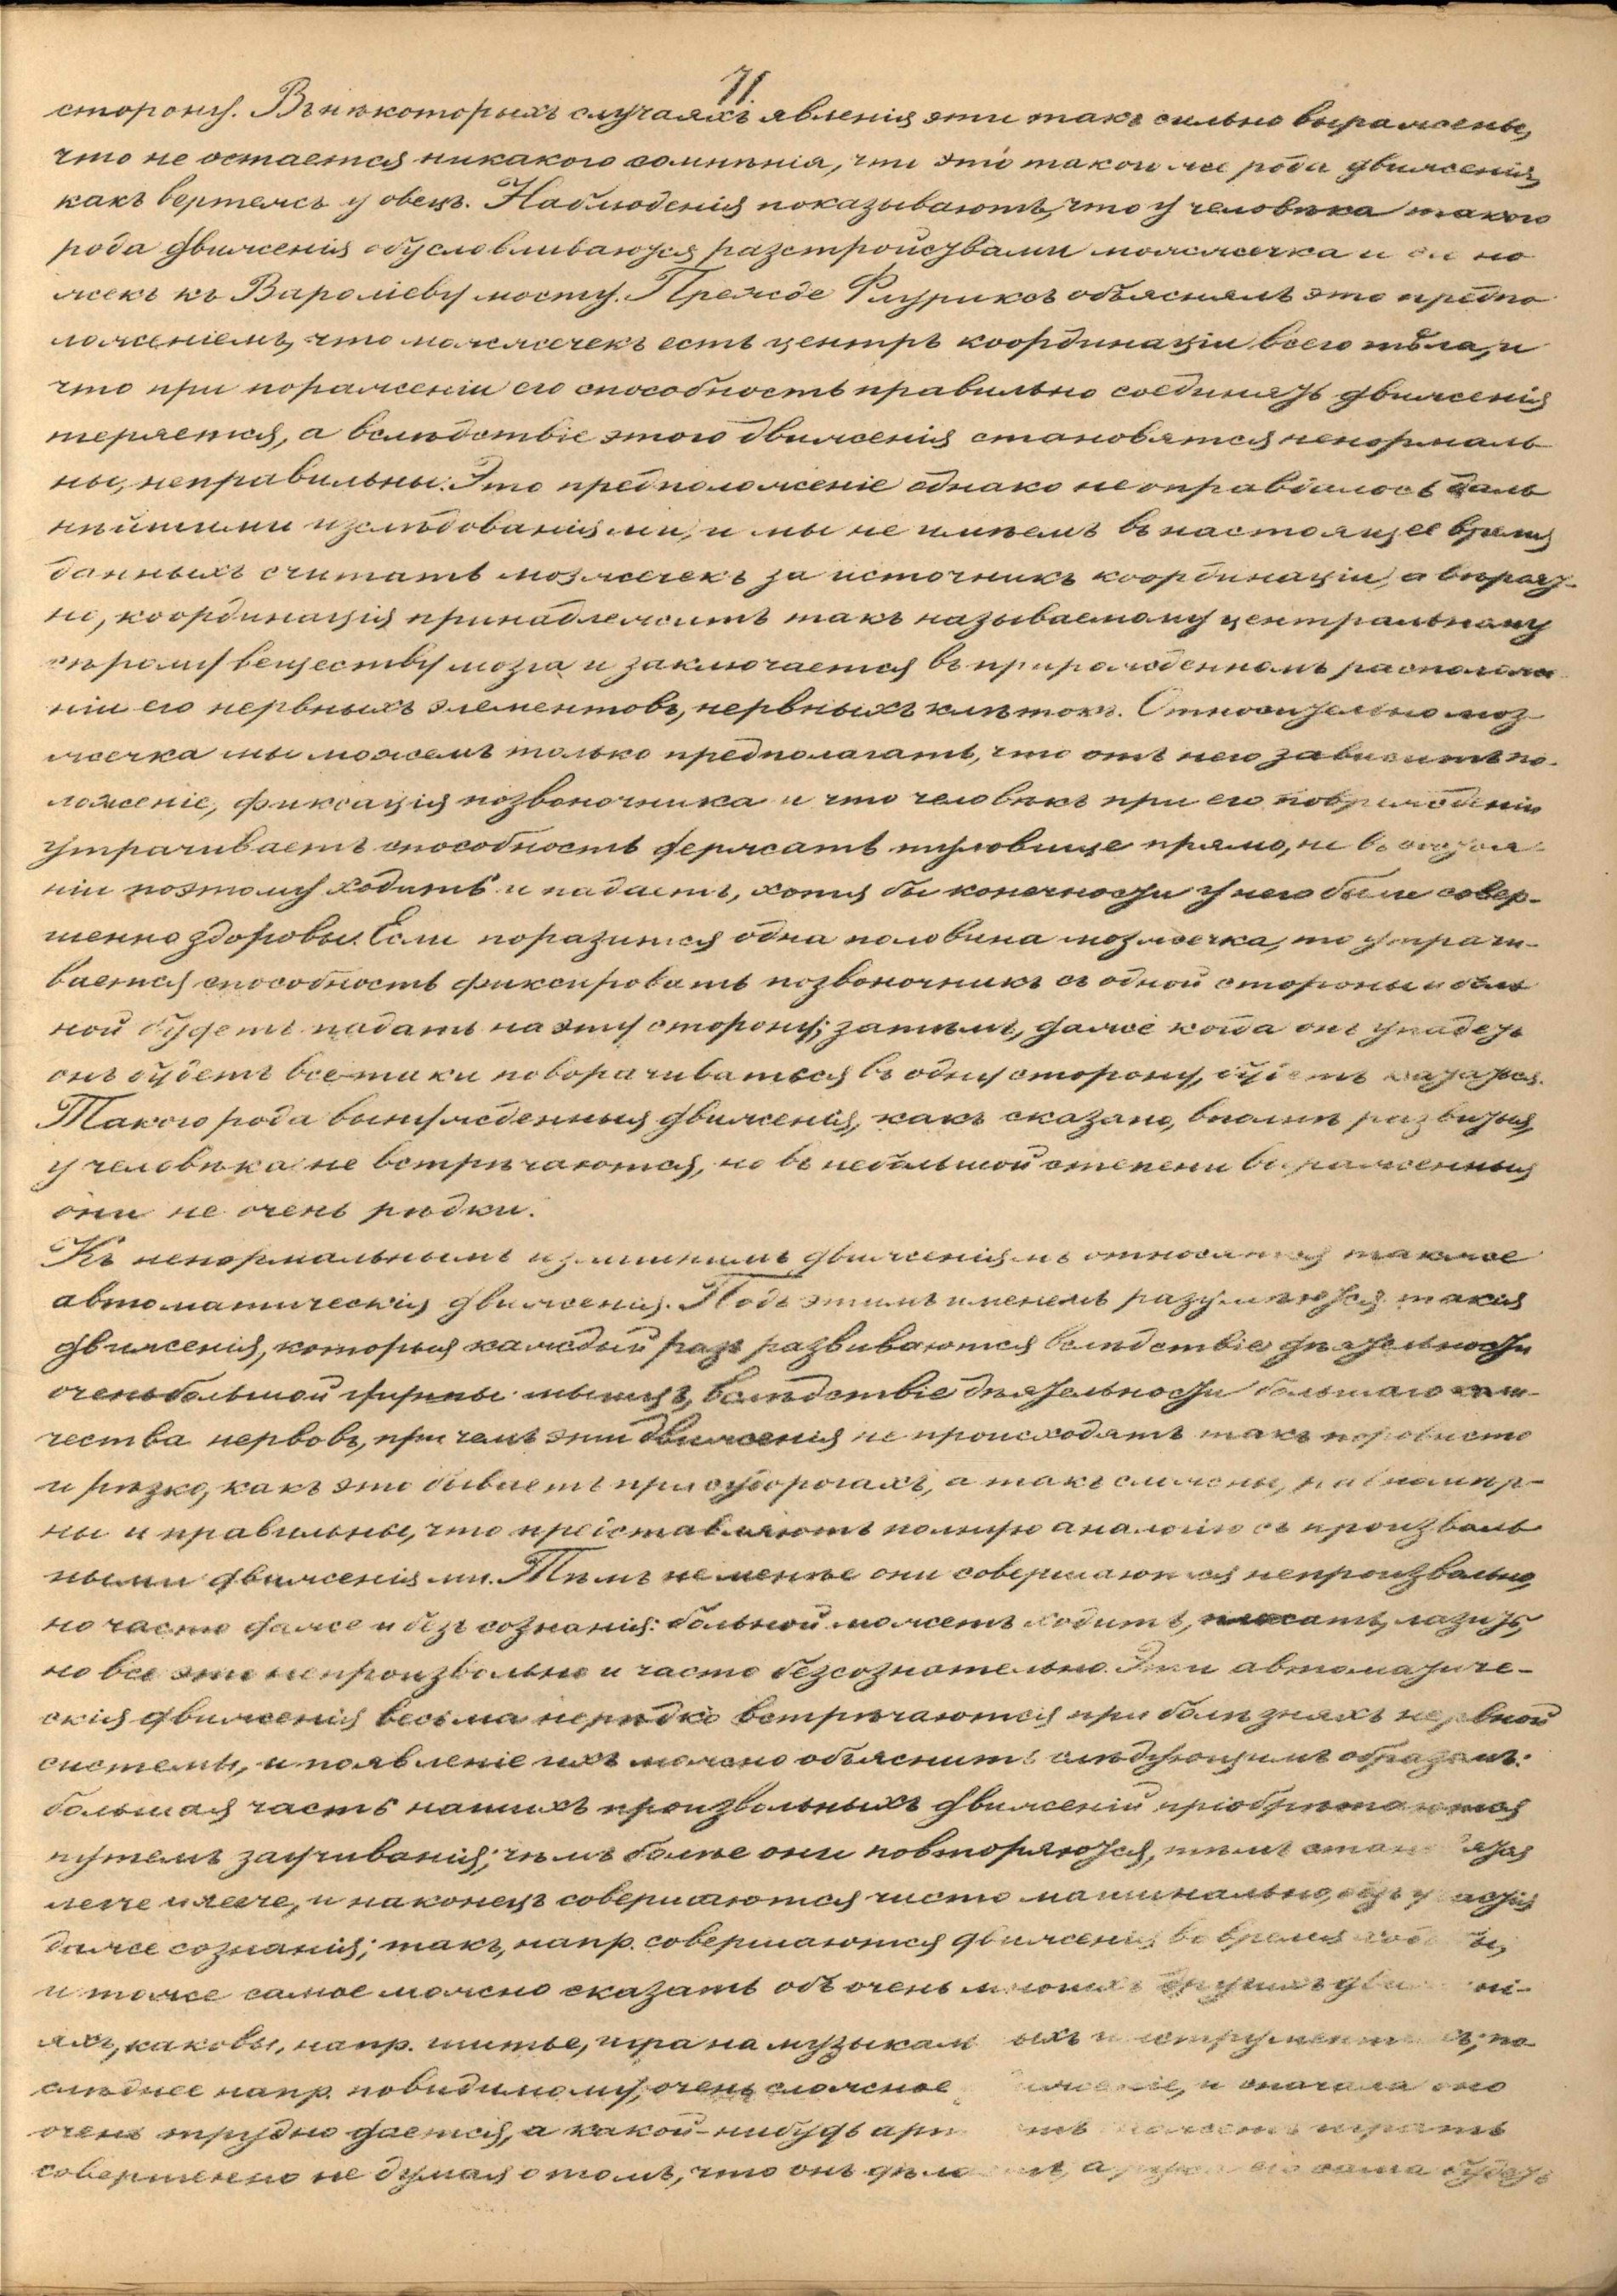 71.
сторону. Въ нѣкоторыхъ случаяхъ явленія эти такъ сильно выражены,
что не остается никакого сомнѣнія, что это такого же рода движенія,
какъ вертежъ у овецъ. Наблюденія показываютъ, что у человѣка такого
рода движенія обусловливаются разстройствами мозжечка и его но
жекъ къ Варолiеву мосту. Прежде объясняли это предпо
ложеніемъ, что мозжечекъ есть центръ координаціи всего тѣла, и
что при пораженіи его способность правильно соединять движенія
теряется, а вслѣдствіе этого движенія становятся ненормаль
ны, неправильны. Это предположеніе однако не оправдалось даль
нѣйшими изслѣдованіями, и мы не имѣемъ въ настоящее время
данныхъ считать мозжечекъ за источникъ координаціи, а вѣроят-
но, координація принадлежитъ такъ называемому центральному
сѣрому веществу мозга и заключается въ прирожденномъ расположе
ніи его нервныхъ элементовъ, нервныхъ клѣтокъ. Относительно моз-
жечка мы можемъ только предполагать, что отъ него зависитъ по-
ложеніе, фиксація позвоночника и что человѣкъ при его поврежденіи
утрачиваетъ способность держать туловище прямо, не въ состоя-
ніи поэтому ходить и падаетъ, хотя бы конечности у него были совер-
шенно здоровы. Если поразится одна половина мозжечка, то утрачи-
вается способность фиксировать позвоночникъ съ одной стороны и боль
ной будетъ падать на эту сторону; затѣмъ, даже когда онъ упадетъ
онъ будетъ все-таки поворачиваться въ одну сторону, будетъ
Такого рода вынужденныя движенія, какъ сказано, вполнѣ развитыя
у человѣка не встрѣчаются, но въ небольшой степени выраженныя
они не очень рѣдки.
Къ ненормальнымъ излишнимъ движеніямъ относятся также
автоматическія движенія. Подъ этимъ именемъ разумѣются такія
движенія, которыя каждый разъ развиваются вслѣдствіе дѣятельности
очень большой группы мышцъ, вслѣдствіе дѣятельности большаго коли-
чества нервовъ, при чемъ эти движенія не происходятъ такъ порывисто
и рѣзко, какъ это бываетъ при судорогахъ, а такъ сложны, равномѣр-
ны и правильны, что представляютъ полную аналогію съ произволь
ными движеніями. Тѣмъ не менѣе они совершаются непроизвольно,
но часто даже и безъ сознанія: больной можетъ ходить, плясать, лазить,
но все это непроизвольно и часто безсознательно. Эти автоматиче-
скія движенія весьма нерѣдко встрѣчаются при болѣзняхъ нервной
системы, и появленіе ихъ можно объяснить слѣдующимъ образомъ:
большая часть нашихъ произвольныхъ движеній пріобрѣтаются
путемъ заучиванія; чѣмъ болѣе они повторяются, тѣмъ становятся
легче и легче, и наконецъ совершаются чисто машинально, безъ участія
даже сознанія; такъ, напр. совершаются движенія во время ходьбы,
и тоже самое можно сказать объ очень многихъ другихъ движені-
яхъ, каковы, напр. шитье, игра на музыкальныхъ инструментахъ; по
слѣднее напр. повидимому, очень сложное движеніе, и сначала оно
очень трудно дается, а какой-нибудь артистъ можетъ играть
совершенно не думая о томъ, что онъ дѣлаетъ, а рука его сама будетъ